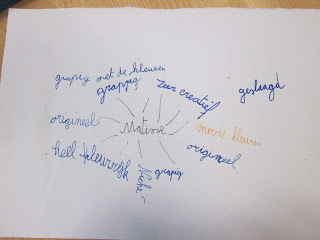 grapig met de kleuren
grappig
zeer creatief
geslaagd
origineel
Matisse
mooie kleuren
origineel
heel kleurrijk
grapig